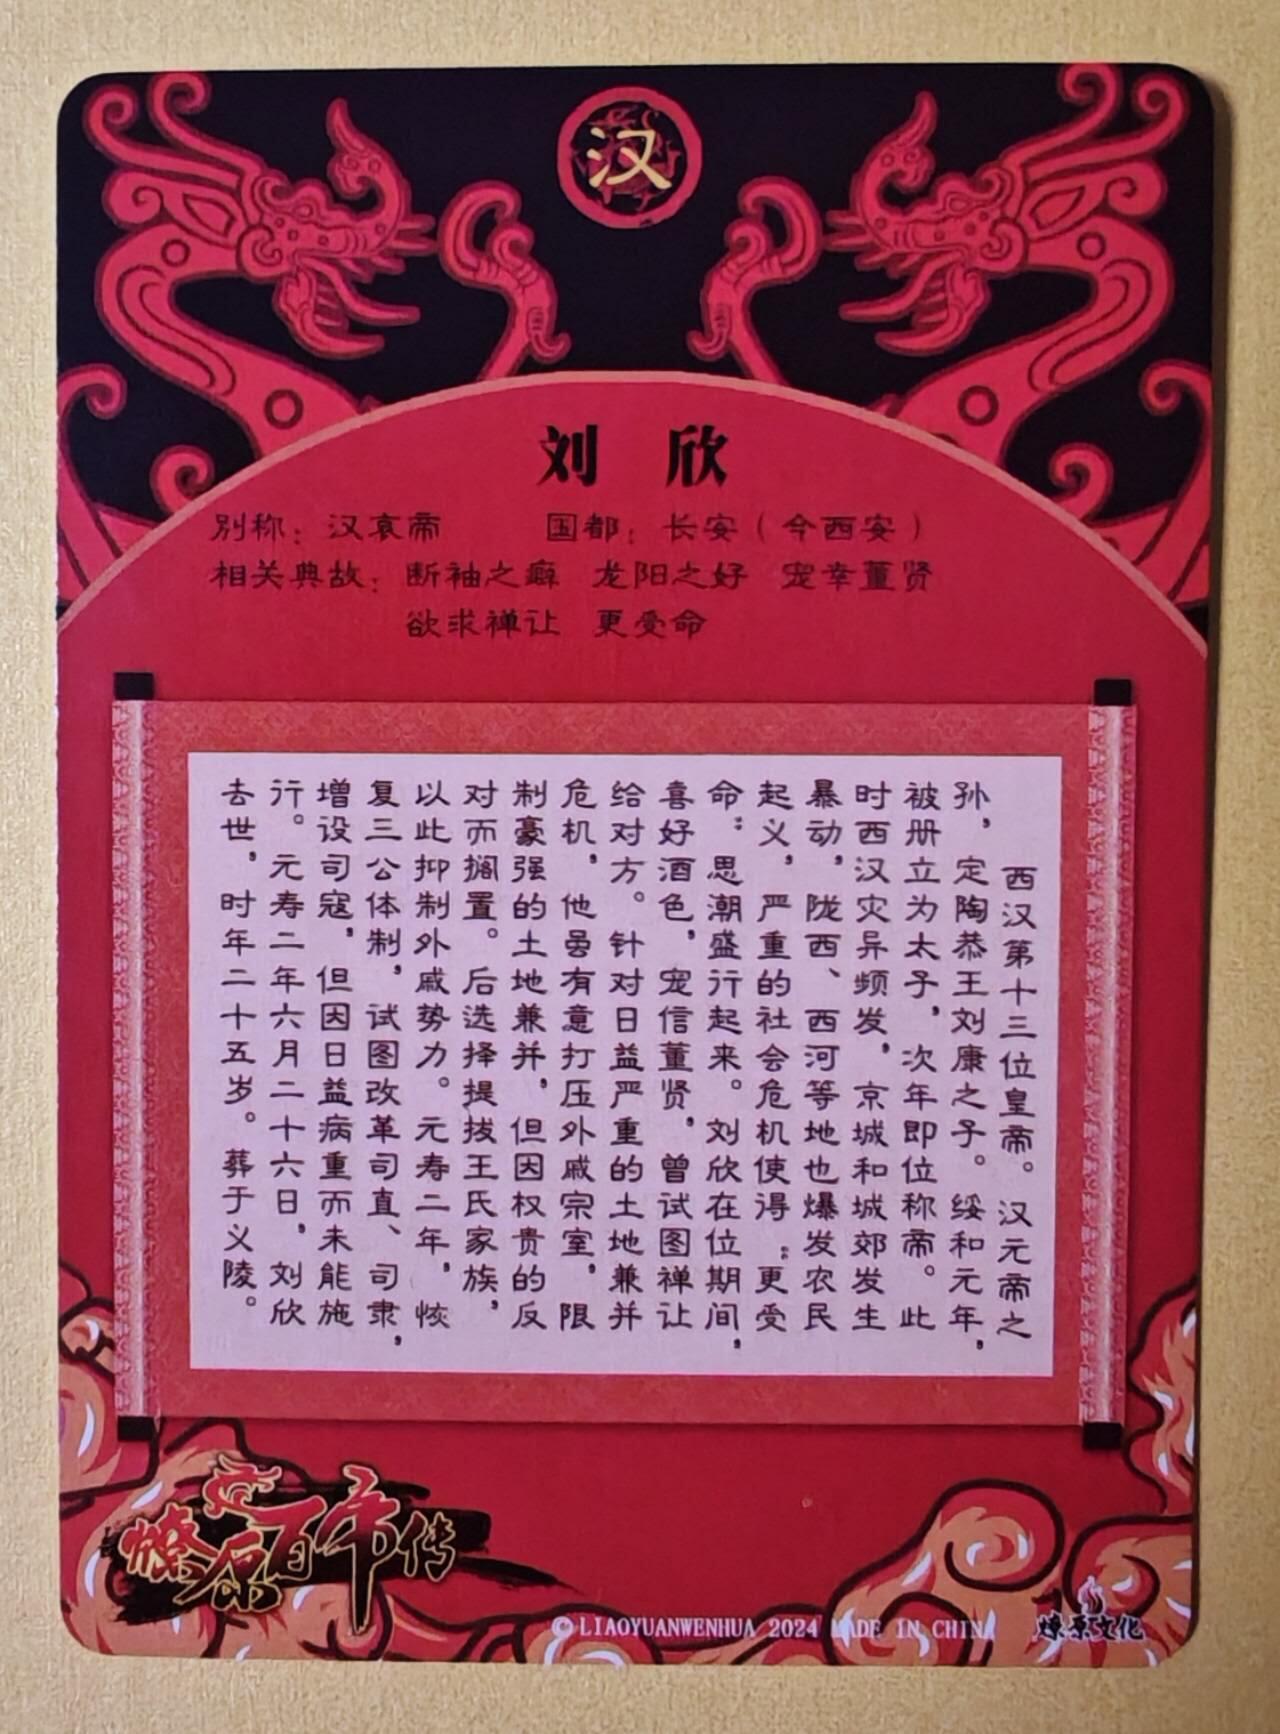 汉
刘 欣
别称：汉哀帝 国都：长安（今西安）
相关典故：断袖之癖 龙阳之好 宠幸董贤
欲求禅让 更受命
西汉第十三位皇帝。汉元帝之
孙，定陶恭王刘康之子。绥和元年，
被册立为太子，次年即位称帝。此
时西汉灾异频发，京城和城郊发生
暴动，陇西、西河等地也爆发农民
起义，严重的社会危机使得“更受
命”思潮盛行起来。刘欣在位期间，
喜好酒色，宠信董贤，曾试图禅让
给对方。针对日益严重的土地兼并
危机，他虽有意打压外戚宗室，限
制豪强的土地兼并，但因权贵的反
对而搁置。后选择提拔王氏家族，
以此抑制外戚势力。元寿二年，恢
复三公体制，试图改革司直、司隶，
增设司寇，但因日益病重而未能施
行。元寿二年六月二十六日，刘欣
去世，时年二十五岁。葬于义陵。
燎原百帝传
© LIAOYUANWENHUA 2024 MADE IN CHINA
燎原文化